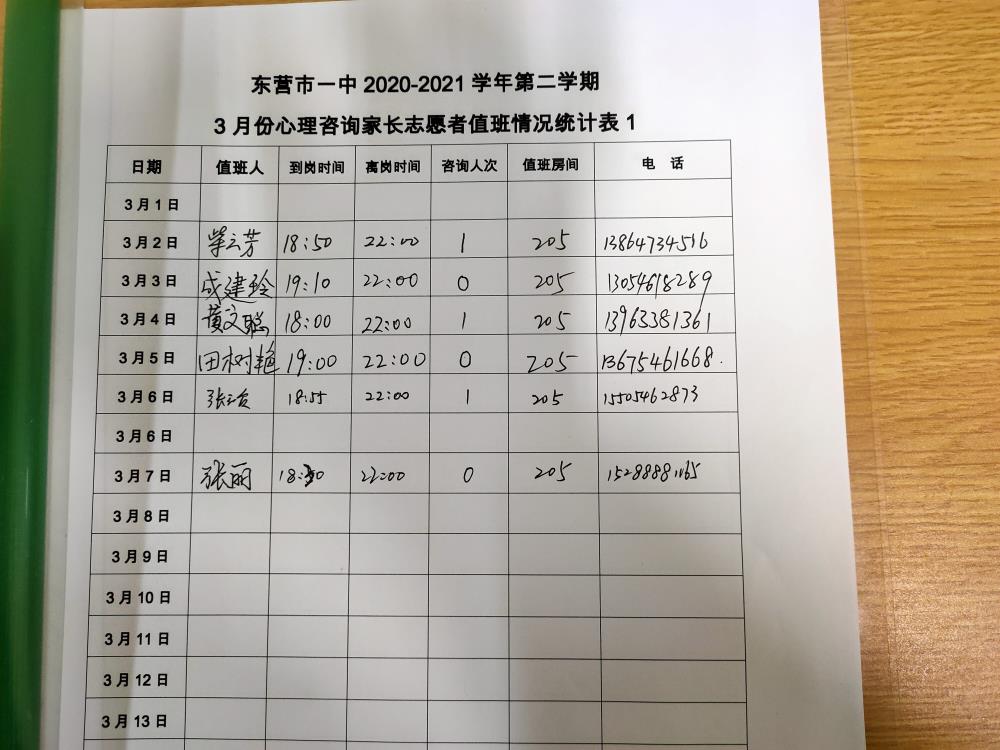 东营市一中 2020-2021 学年第二学期
3 月份心理咨询家长志愿者值班情况统计表 1
日期 值班人 到岗时间 离岗时间 咨询人次 值班房间 电 话
3 月 1 日
3 月 2 日 18:50 22:00 1 205 13864734516
3 月 3 日 成建玲 19:10 22:00 0 205 13054618289
3 月 4 日 黄文聪 18:00 22:00 1 205 13963381361
3 月 5 日 田树艳 19:00 22:00 0 205 13675461668.
3 月 6 日 18:55 22:00 1 205 15505462873
3 月 6 日
3 月 7 日 张丽 22:00 0 205
3 月 8 日
3 月 9 日
3 月 10 日
3 月 11 日
3 月 12 日
3 月 13 日